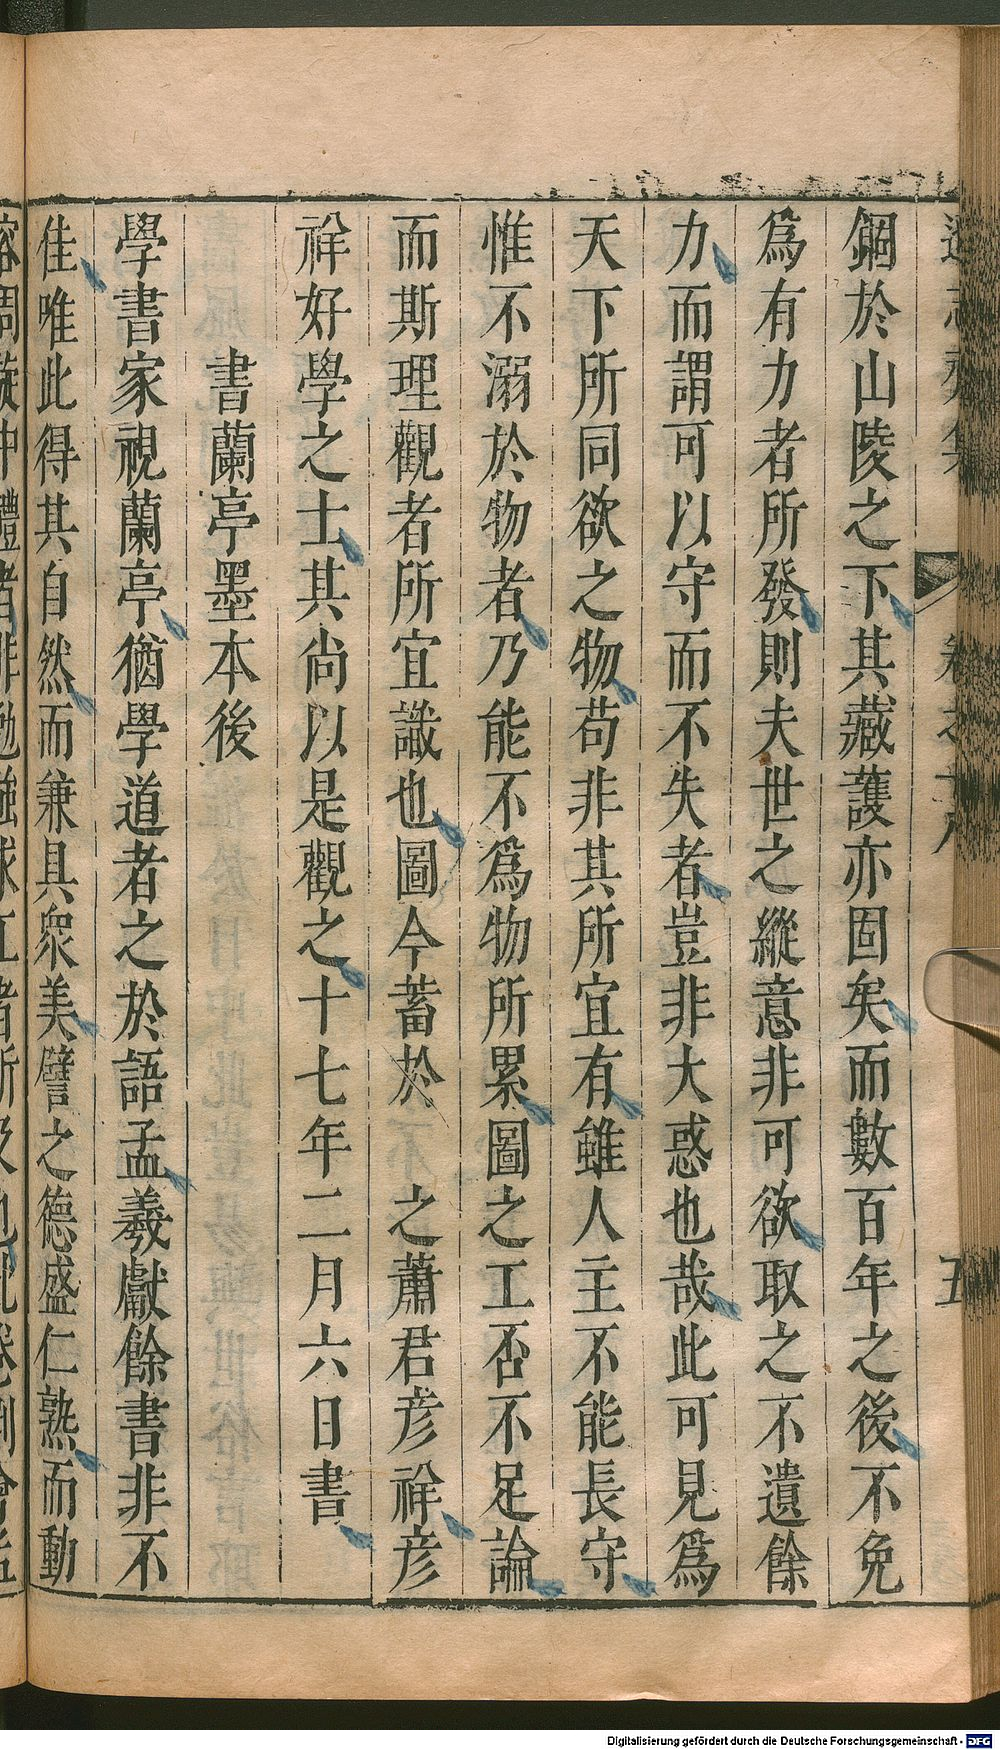 錮於山陵之下其藏護亦固矣而數百年之後不免
爲有力者所發則夫世之縱意非可欲取之不遺餘
力而謂可以守而不失者豈非大惑也哉此可見爲
天下所同欲之物苟非其所宜有雖人主不能長守
惟不溺於物者乃能不爲物所累圖之工否不足論
而斯理觀者所宜識也圖今蓄於 之蕭君彦祥彦
祥好學之士其尚以是觀之十七年二月六日書
書蘭亭墨本後
學書家視蘭亭猶學道者之於語孟羲獻餘書非不
佳唯此得其自然而兼具衆美譬之德盛仁熟而動
五
Digitalisierung gefördert durch die Deutsche Forschungsgemeinschaft - DFG